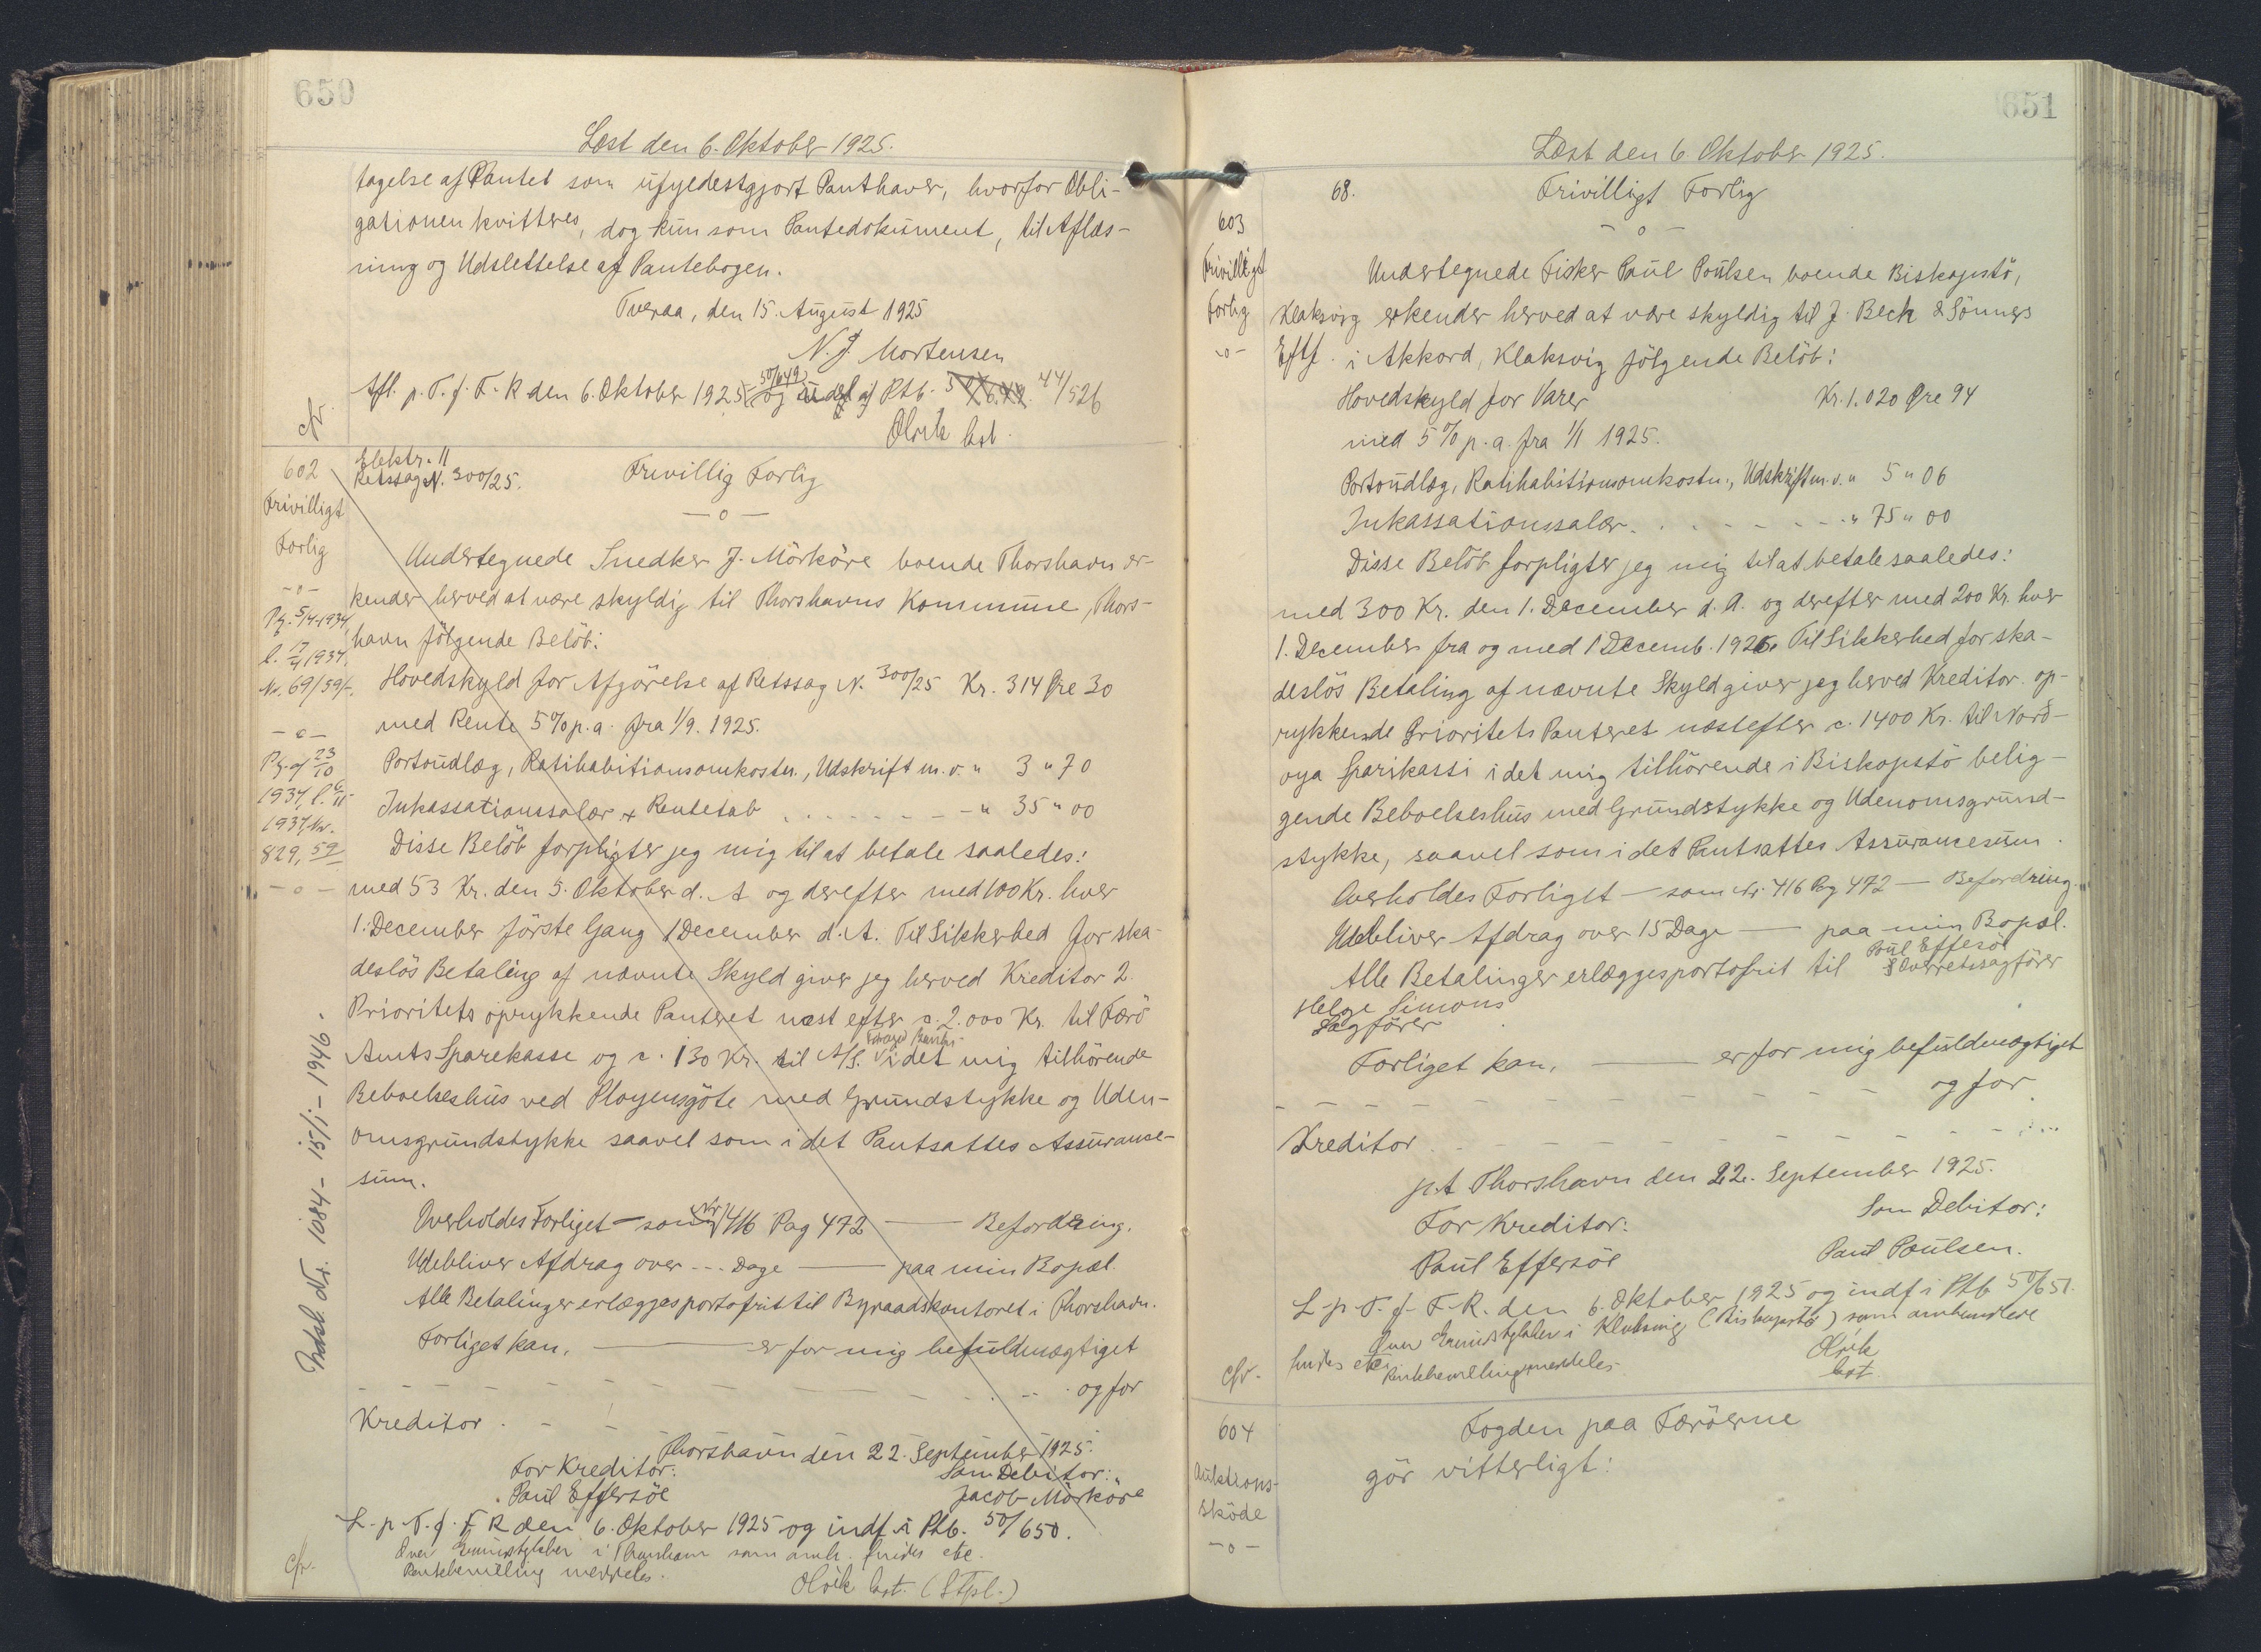 650
Læst den 6. Oktober 1925.
tagelse af Pantet som ufyldestgjort Panthaver, hvorfor Obli-
gationen kvitteres, dog kun som Pantedokument, til Aflæs-
ning og Udslettelse af Pantebogen.
Tveraa, den 15. August 1925
N. J. Mortensen
Afl. p. T. f. F. R den 6. Oktober 1925 og udsl af Ptb. 44/526
50/649
Olrik kst.
cfr.
602
Frivilligt
Forlig
-o-
Pg. 5/4-1934,
l. 17/4 1934.
Nr. 69/59/-.
-o-
Pg. af 23/10
1937, l. 6/11
1937, Nr.
829, 59
-o-
Indsl. Nr. 1084 - 15/1 - 1946 -
Elektr. 11
Retssag N. 300/25.
Frivillig Forlig
-o-
Undertegnede Snedker J. Mörköre boende Thorshavn er-
kender herved at være skyldig til Thorshavns Kommune, Thors-
havn følgende Beløb:
Hovedskyld for Afgörelse af Retssag N. 300/25 Kr. 314 Øre 30
med Rente 5% p. a. fra 1/9. 1925.
Portoudlæg, Ratihabitionsomkostn., Udskrift m. v. " 3 " 70
Inkassationssalær + Rentetab . . . . . . - " 35 " 00
Disse Belöb forpligter jeg mig til at betale saaledes:
med 53 Kr. den 5. Oktober d. A og derefter med 100 Kr. hver
1. December förste Gang 1 December d. A. Til Sikkerhed for ska-
deslös Betaling af nævnte Skyld giver jeg herved Kreditor 2
Prioritets oprykkende Panteret næst efter c. 2.000 Kr. til Færö
Amts Sparekasse og c. 130 Kr. til A/S. Föroya Banki i det mig tilhörende
Beboelseshus ved Ployensgöte med Grundstykke og Uden-
omsgrundstykke saavel som i det Pantsattes Assurance-
sum.
Overholdes Forliget - som Nr 416 Pag 472 — Befordring.
Udebliver Afdrag over --- Dage — paa min Bopæl.
Alle Betalinger erlægges portofrit til Byraadskontoret i Thorshavn.
Forliget kan, — er for mig befuldmægtiget
og for
Kreditor
Thorshavn den 22. September 1925.
For Kreditor: Som Debitor:
Paul Effersöe Jacob Mörköre
L. p. T. f. F R den 6. Oktober 1925 og indf i Ptb. 50/650.
Over Grundstykker i Thorshavn som anh. findes etc.
Pantebevilling meddeles.
Olrik kst. (Stpl.)
cfr.
651
Læst den 6 Oktober 1925.
68.
Frivilligt Forlig
-o-
603
Frivilligt
Forlig
-o-
Undertegnede Fisker Paul Poulsen boende Biskopstö,
Klaksvig erkender herved at være skyldig til J. Beck & Sönners
Eftf. i Akkord, Klaksvig fölgende Belöb:
Hovedskyld for Varer Kr. 1.020 Øre 94
med 5% p. a. fra 1/1 1925.
Portoudlæg, Ratihabitionsomkostn., Udskrift m. v. " 5 " 06
Inkassationssalær . . . . . . - " 75 " 00
Disse Belöb forpligter jeg mig til at betale saaledes:
med 300 Kr. den 1. December d. A. og derefter med 200 Kr. hver
1. December fra og med 1 Decemb. 1926. Til Sikkerhed for ska-
deslös Betaling af nævnte Skyld giver jeg herved Kreditor op-
rykkende Prioritets Panteret næstefter c. 1400 Kr. til Norð-
oya Sparikassi i det mig tilhörende i Biskopstö belig-
gende Beboelseshus med Grundstykke og Udenomsgrund-
stykke, saavel som i det Pantsattes Assurancesum.
Overholdes Forliget - som Nr. 416 Pag 472 — Befordring.
Udebliver Afdrag over 15 Dage — paa min Bopæl.
Alle Betalinger erlægges portofrit til Paul Effersöe Overretssagförer
Helge Simons
Sagförer
Forliget kan, — er for mig befuldmægtiget
og for
Kreditor
p.t Thorshavn den 22. September 1925.
For Kreditor: Som Debitor:
Paul Effersöe Paul Poulsen.
L. p. T. f. F. R. den 6. Oktober 1925 og indf i Ptb 50/651.
Over Grundstykker i Klaksvig (Biskopstö) som anhendere
findes etc. Pantebevilling meddeles.
Olrik
kst.
cfr.
604
Auktions-
sköde
-o-
Fogden paa Færöerne
gör vitterligt: